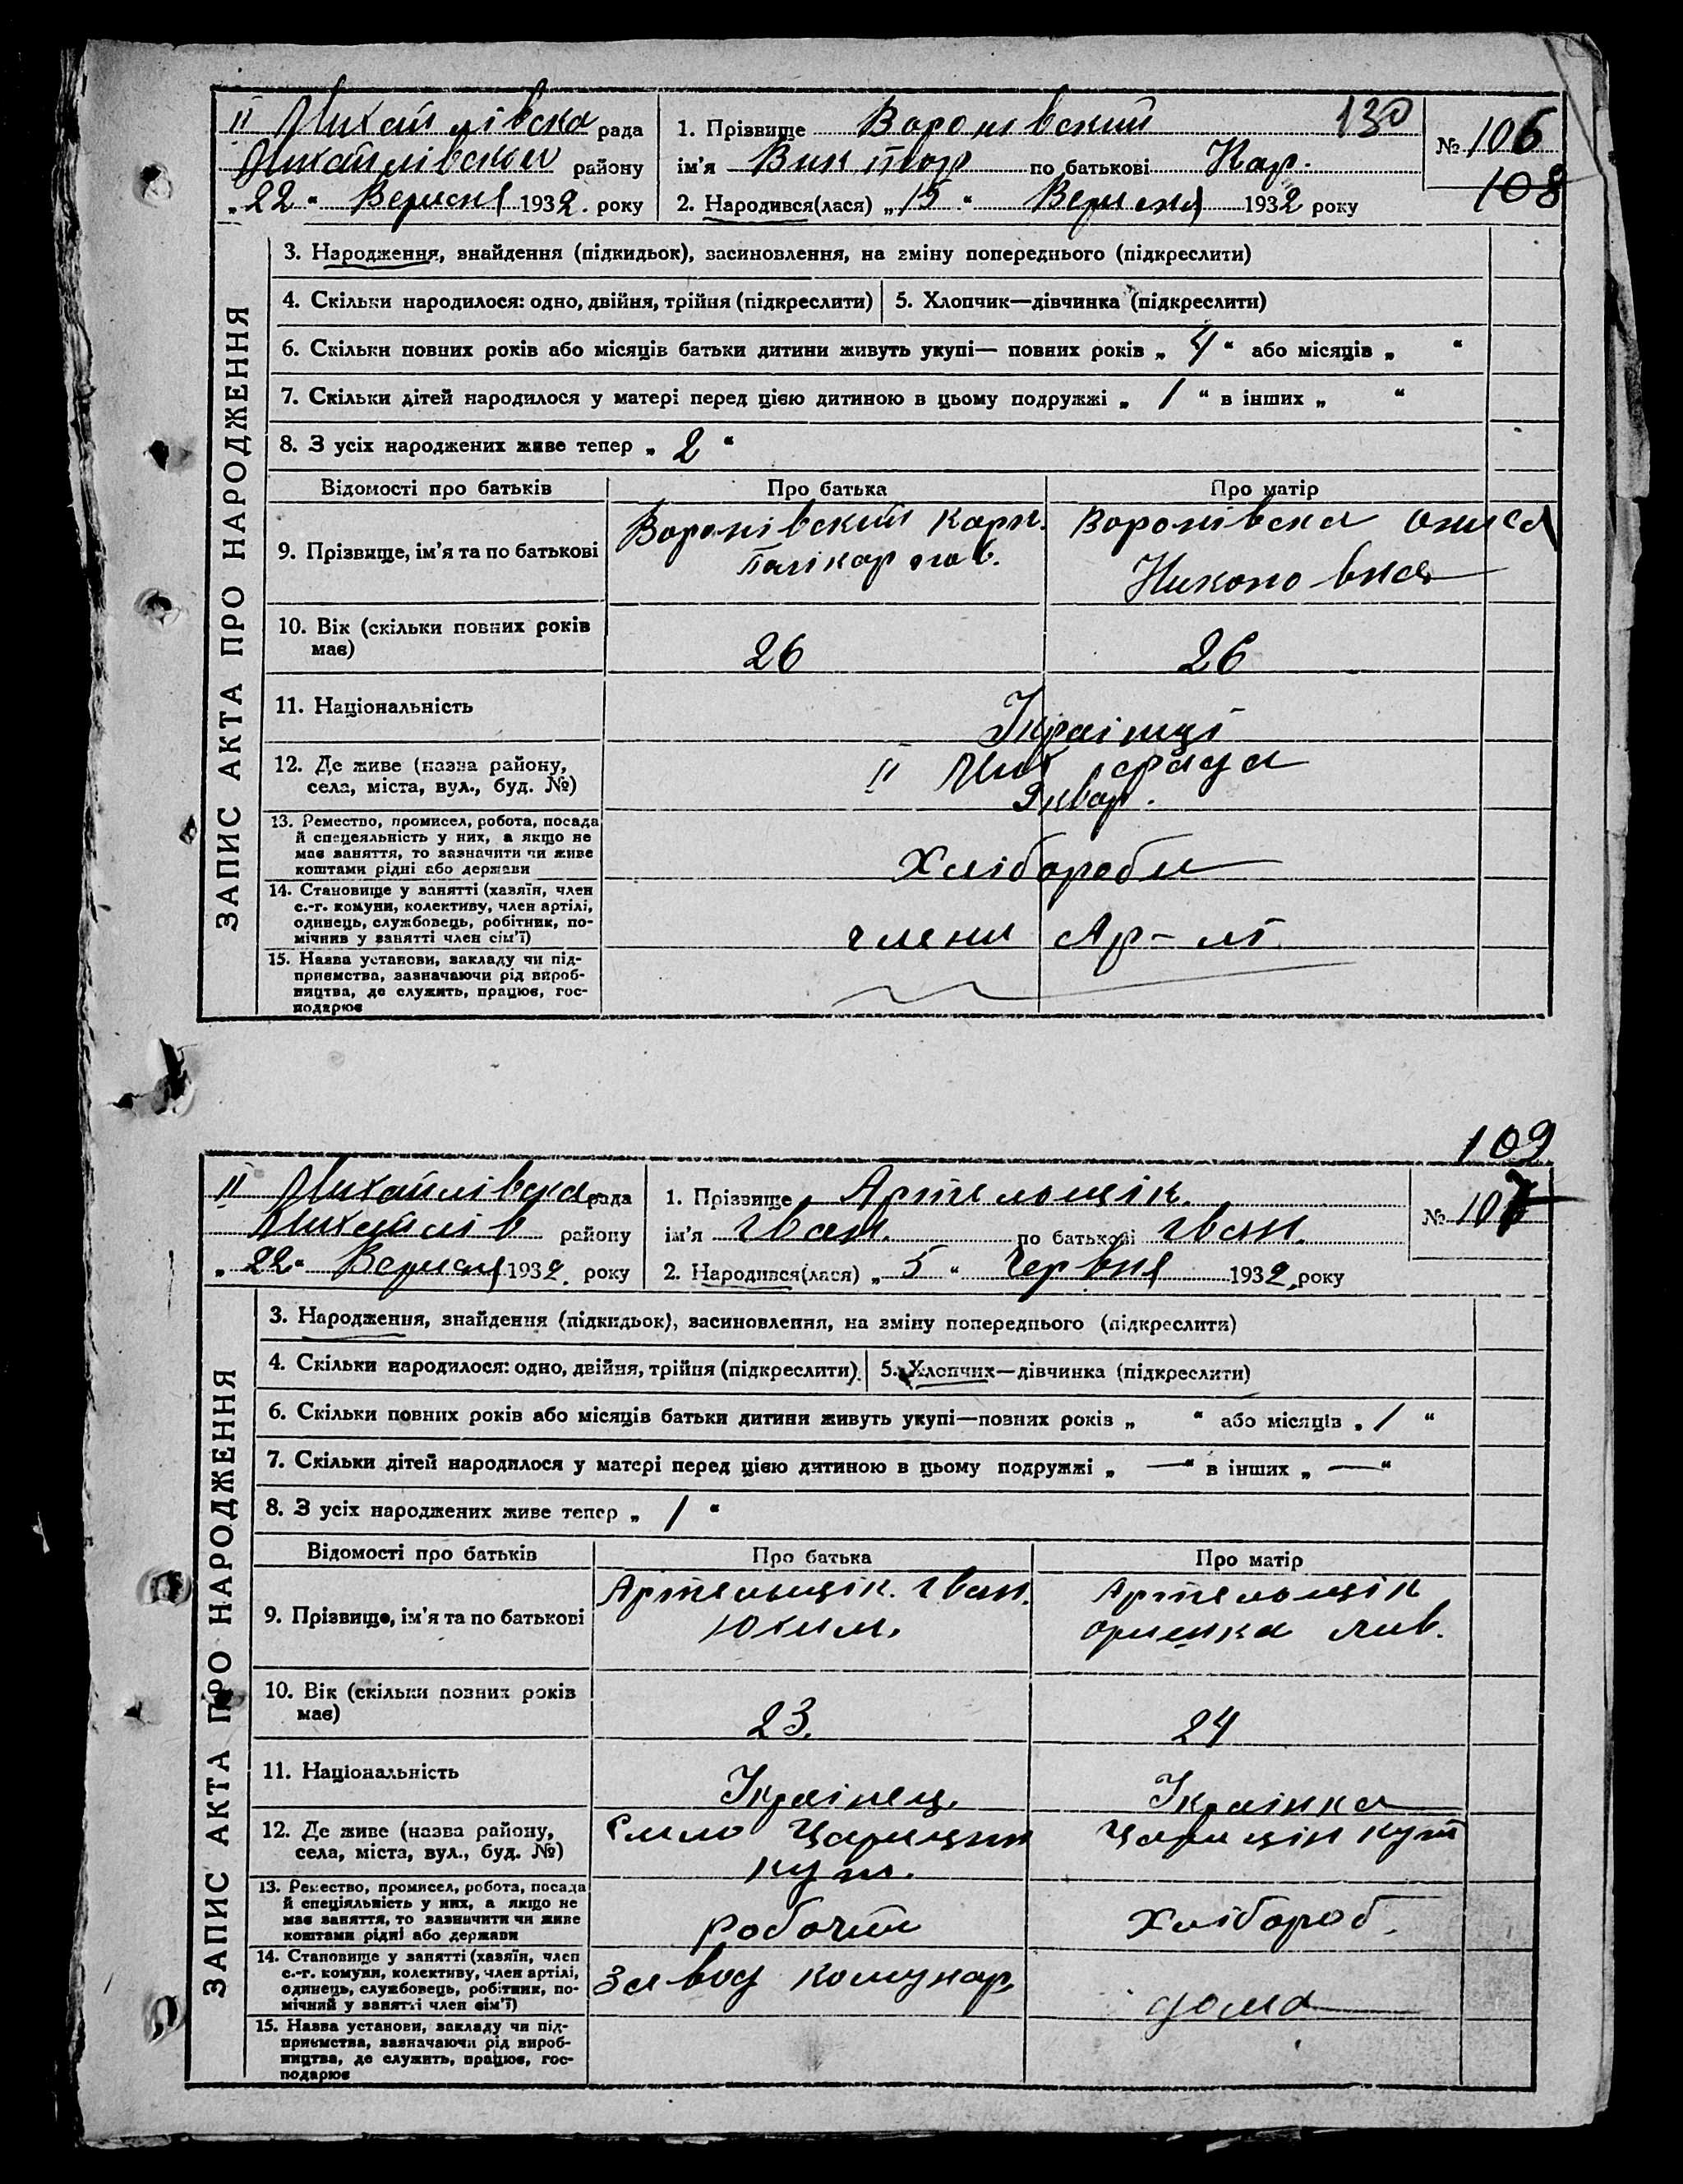 II Михайлівска рада
Михайлівском району
„22“ Вересня 1932. року
1. Прізвище Воронівский 130
ім'я Виктор по батькові Кар.
2. Народився(лася) „15“ Вересня 1932 року
№ 106
108
ЗАПИС АКТА ПРО НАРОДЖЕННЯ
3. Народження, знайдення (підкидьок), засиновлення, на зміну попереднього (підкреслити)
4. Скільки народилося: одно, двійня, трійня (підкреслити) 5. Хлопчик—дівчинка (підкреслити)
6. Скільки повних років або місяців батьки дитини живуть укупі— повних років „ 4 “ або місяців „ “
7. Скільки дітей народилося у матері перед цією дитиною в цьому подружжі „ 1 “ в інших „ “
8. З усіх народжених живе тепер „ 2 “
Відомості про батьків Про батька Про матір
9. Прізвище, ім'я та по батькові
Воронівский Карп.
Полікарпов.
Воронівска
Никоновна
10. Вік (скільки повних років
має)
26 26
11. Національність
Україиці
12. Де живе (назва району,
села, міста, вул., буд. №)
II Мих рада
9 квар.
13. Ремество, промисел, робота, посада
й спецеяльність у них, а якщо не
має заняття, то зазначити чи живе
коштами рідні або держави
Хлібороби
14. Становище у занятті (хазяїн, член
с.-г. комуни, колективу, член артілі,
одинець, службовець, робітник, по-
мічнив у занятті член сім'ї)
члени Ар-лі
15. Назва установи, закладу чи під-
приємства, зазначаючи рід вироб-
ництва, де служить, працює, гос-
подарює
109
II Михайлівска рада
Михайлів району
„22“ Вересня 1932. року
1. Прізвище Артельощік.
ім'я Іван. по батькові Іван.
2. Народився(лася) „5“ Червня 1932. року
№ 107
ЗАПИС АКТА ПРО НАРОДЖЕННЯ
3. Народження, знайдення (підкидьок), засиновлення, на зміну попереднього (підкреслити)
4. Скільки народилося: одно, двійня, трійня (підкреслити). 5. Хлопчих—дівчинка (підкреслити)
6. Скільки повних років або місяців батьки дитини живуть укупі—повних років „ “ або місяців „ 1 “
7. Скільки дітей народилося у матері перед цією дитиною в цьому подружжі „ — “ в інших „ — “
8. З усіх народжених живе тепер „ 1 “
Відомості про батьків Про батька Про матір
9. Прізвище, ім'я та по батькові
Артельщік. Іван.
Юхим.
Артельощік
Орешка Лив.
10. Вік (скільки повних років
має)
23. 24
11. Національність
Українец Українка
12. Де живе (назва району,
села, міста, вул., буд. №)
Село Царицин
кут.
Царицін кут
13. Ремество, промисел, робота, посада
й спеціяльність у них, а якщо не
має заняття, то зазначити чи живе
коштами рідні або держави
робочий Хлібороб.
14. Становище у занятті (хазяїн, член
с.-г. комуни, колективу, член артілі,
одинець, службовець, робітник, по-
мічний у занятті член сім'ї)
завод комунар. дома
15. Назва установи, закладу чи під-
приємства, зазначаючи рід вироб-
ництва, де служить, працює, гос-
подарює